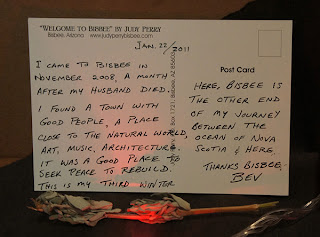 "WELCOME TO BISBEE" BY JUDY PERRY
Bisbee, Arizona www.judyperrybisbee.com
JAN. 22/2011
I CAME TO BISBEE IN
NOVEMBER 2008, A MONTH
AFTER MY HUSBAND DIED.
I FOUND A TOWN WITH
GOOD PEOPLE, A PLACE
CLOSE TO THE NATURAL WORLD,
ART, MUSIC, ARCHITECTURE.
IT WAS A GOOD PLACE TO
SEEK PEACE TO REBUILD.
THIS IS MY THIRD WINTER
Box 1721, Bisbee, AZ 85603
Post Card
HERE, BISBEE IS
THE OTHER END
OF MY JOURNEY
BETWEEN THE
OCEAN OF NOVA
SCOTIA & HERE.
THANKS BISBEE -
BEV